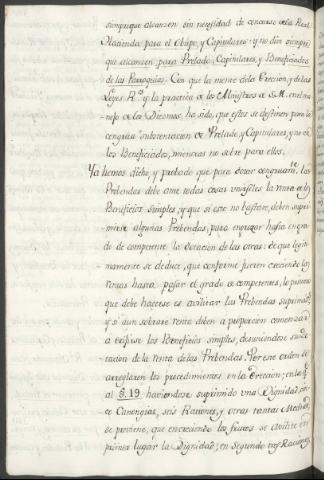 siempre que alcanzen sin necesidad de concurso a la Real
Hacienda para el Obispo, y Capitulares: y no dice siempre
que alcanzen para Prelado, Capitulares, y Beneficiados
de las Parroquias. Con que la mente de la Ereccion, y de las
Leyes R.s y la practica de los Ministros de S.M. en el
de los Diezmos, ha sido, que estos se destinen para la
congrua substentacion de Prelado, y Capitulares, y no de
los Beneficiados, mientras no sobre para ellos.
Ya hemos dicho, y probado que para dotar congruam.te las
Prebendas debe ante todas cosas la renta de los
Beneficios simples; y que si esto no bastare, deben supri-
mirse algunas Prebendas, para engrosar hasta en gra-
do de competente la dotacion de las otras: de que legiti-
mamente se deduce, que conforme fueren creciendo las
rentas hasta pasar el grado de competentes, lo primero
que debe hacerse es las Prebendas suprimidas,
y si aun sobrare renta deben a proporcion comenzar
a erigirse los Beneficios simples, desuniendose su do-
tacion de la renta de las Prebendas. Por este orden se
arreglaron los procedimientos en la Ereccion; en la
al §. 19 haviendose suprimido una Dignidad,
Canongias, seis Raciones, y otras tantas Medias,
se previene, que en creciendo los frutos se
primer lugar la Dignidad; en segundo tres Raciones